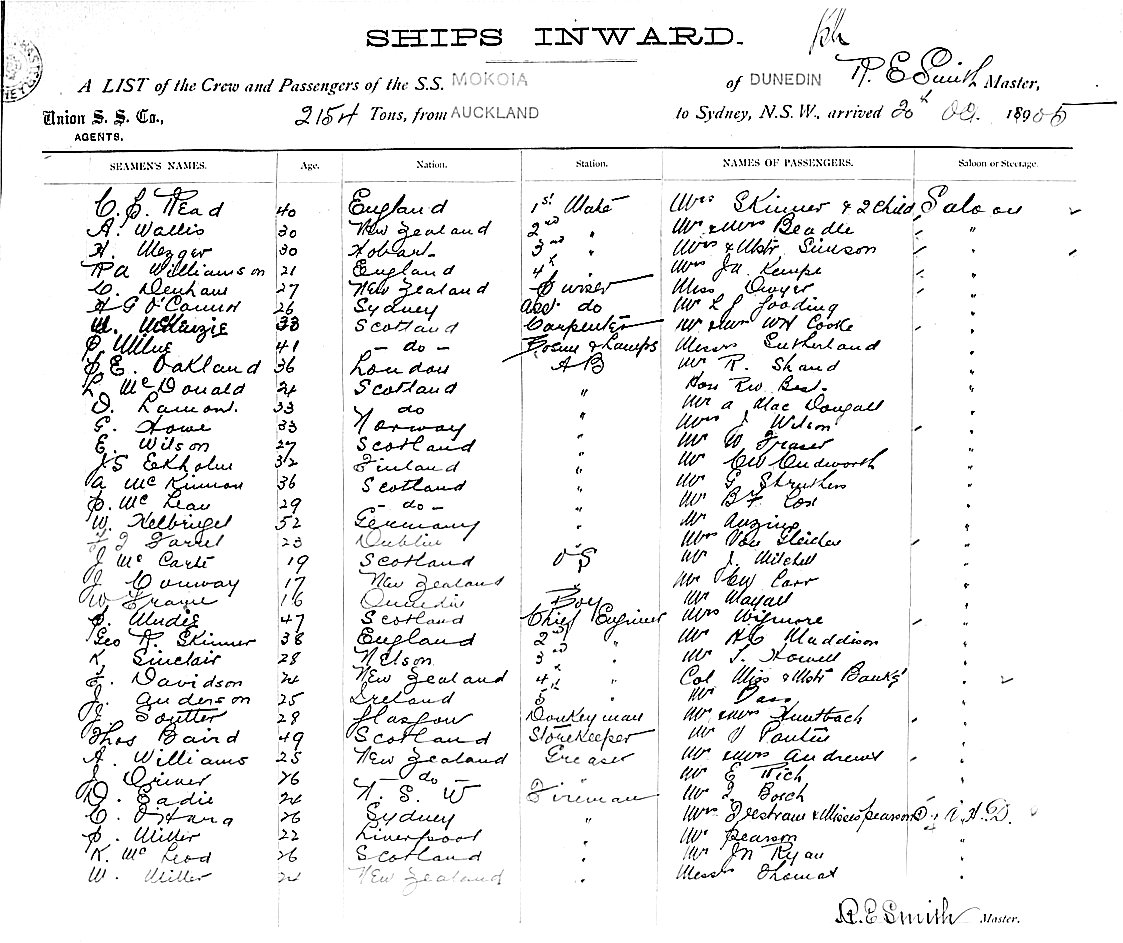 SHIPS INWARD.
A LIST of the Crew and Passengers of the S.S. MOKOIA of DUNEDIN R. E Smith Master,
Union S. S. Co., 2154 Tons, from AUCKLAND to Sydney, N.S.W., arrived 20th Oct. 18905
AGENTS.
SEAMEN'S NAMES. Age. Nation. Station. NAMES OF PASSENGERS. Saloon or Steerage.
40 England 1st Mate Mrs Skinner & 2 Child Saloon
A. Wallis 30 New Zealand 2nd " Mr & Mrs Beadle "
H. Mezger 30 Hobart 3rd " Mrs & Mstr Simson "
R A Williamson 21 England 4th " Mrs Jn Kempe "
C. Denham 27 New Zealand Purser Miss Dwyer "
H G O'Connor 26 Sydney asst do Mr L J Gooding "
W. McKenzie 33 Scotland Carpenter Mr & Mrs WH Cooke "
Milne 41 - do - Bosun & Lamps Messrs Sutherland "
E. Oakland 36 London AB Mr R. Shand "
L. McDonald 24 Scotland " Hon Best "
D. Lamont. 33 do " Mr A Mac Dougall "
G. Howe 33 Norway " Mrs J Wilson "
E. Wilson 27 Scotland " Mr W Fraser "
J.S Ekholm 32 Finland " Mr CW Cudworth "
A McKinnon 36 Scotland " Mr G Struthers "
McLean 29 - do - " Mr B F Cox "
W. Helbrigel 52 Germany " Mr "
Farrel 23 Dublin " Mrs Von "
J McCarte 19 Scotland OS Mr J. Mitchell "
J Conway 17 New Zealand " Mr CW Carr "
W Frame 16 Dunedin Boy Mr Mayall "
Mudie 47 Scotland Chief Engineer Mrs Wigmore "
Geo R. Skinner 38 England 2nd " Mr HC Maddison "
K. Sinclair 28 Nelson 3rd " Mr T. Howell "
Davidson 24 New Zealand 4th " Col Miss & Mstr Banks "
J. Anderson 25 Ireland 5 " Mr "
Soutter 28 Glasgow Donkeyman Mr & Mrs Huntbach "
Thos Baird 49 Scotland Storekeeper Mr "
A. Williams 25 New Zealand Greaser Mr & Mrs Andrews "
J Driver 26 do Mr E Rich "
D. Eadie 24 N. S. W Fireman Mr Borch "
C. O'Hara 26 Sydney " Mrs & Misses Pearson
Miller 22 Liverpool " Mr Pearson "
K. McLeod 26 Scotland " Mr Jn Ryan "
W. Miller 24 New Zealand " Messrs Thomas "
R.E Smith Master.